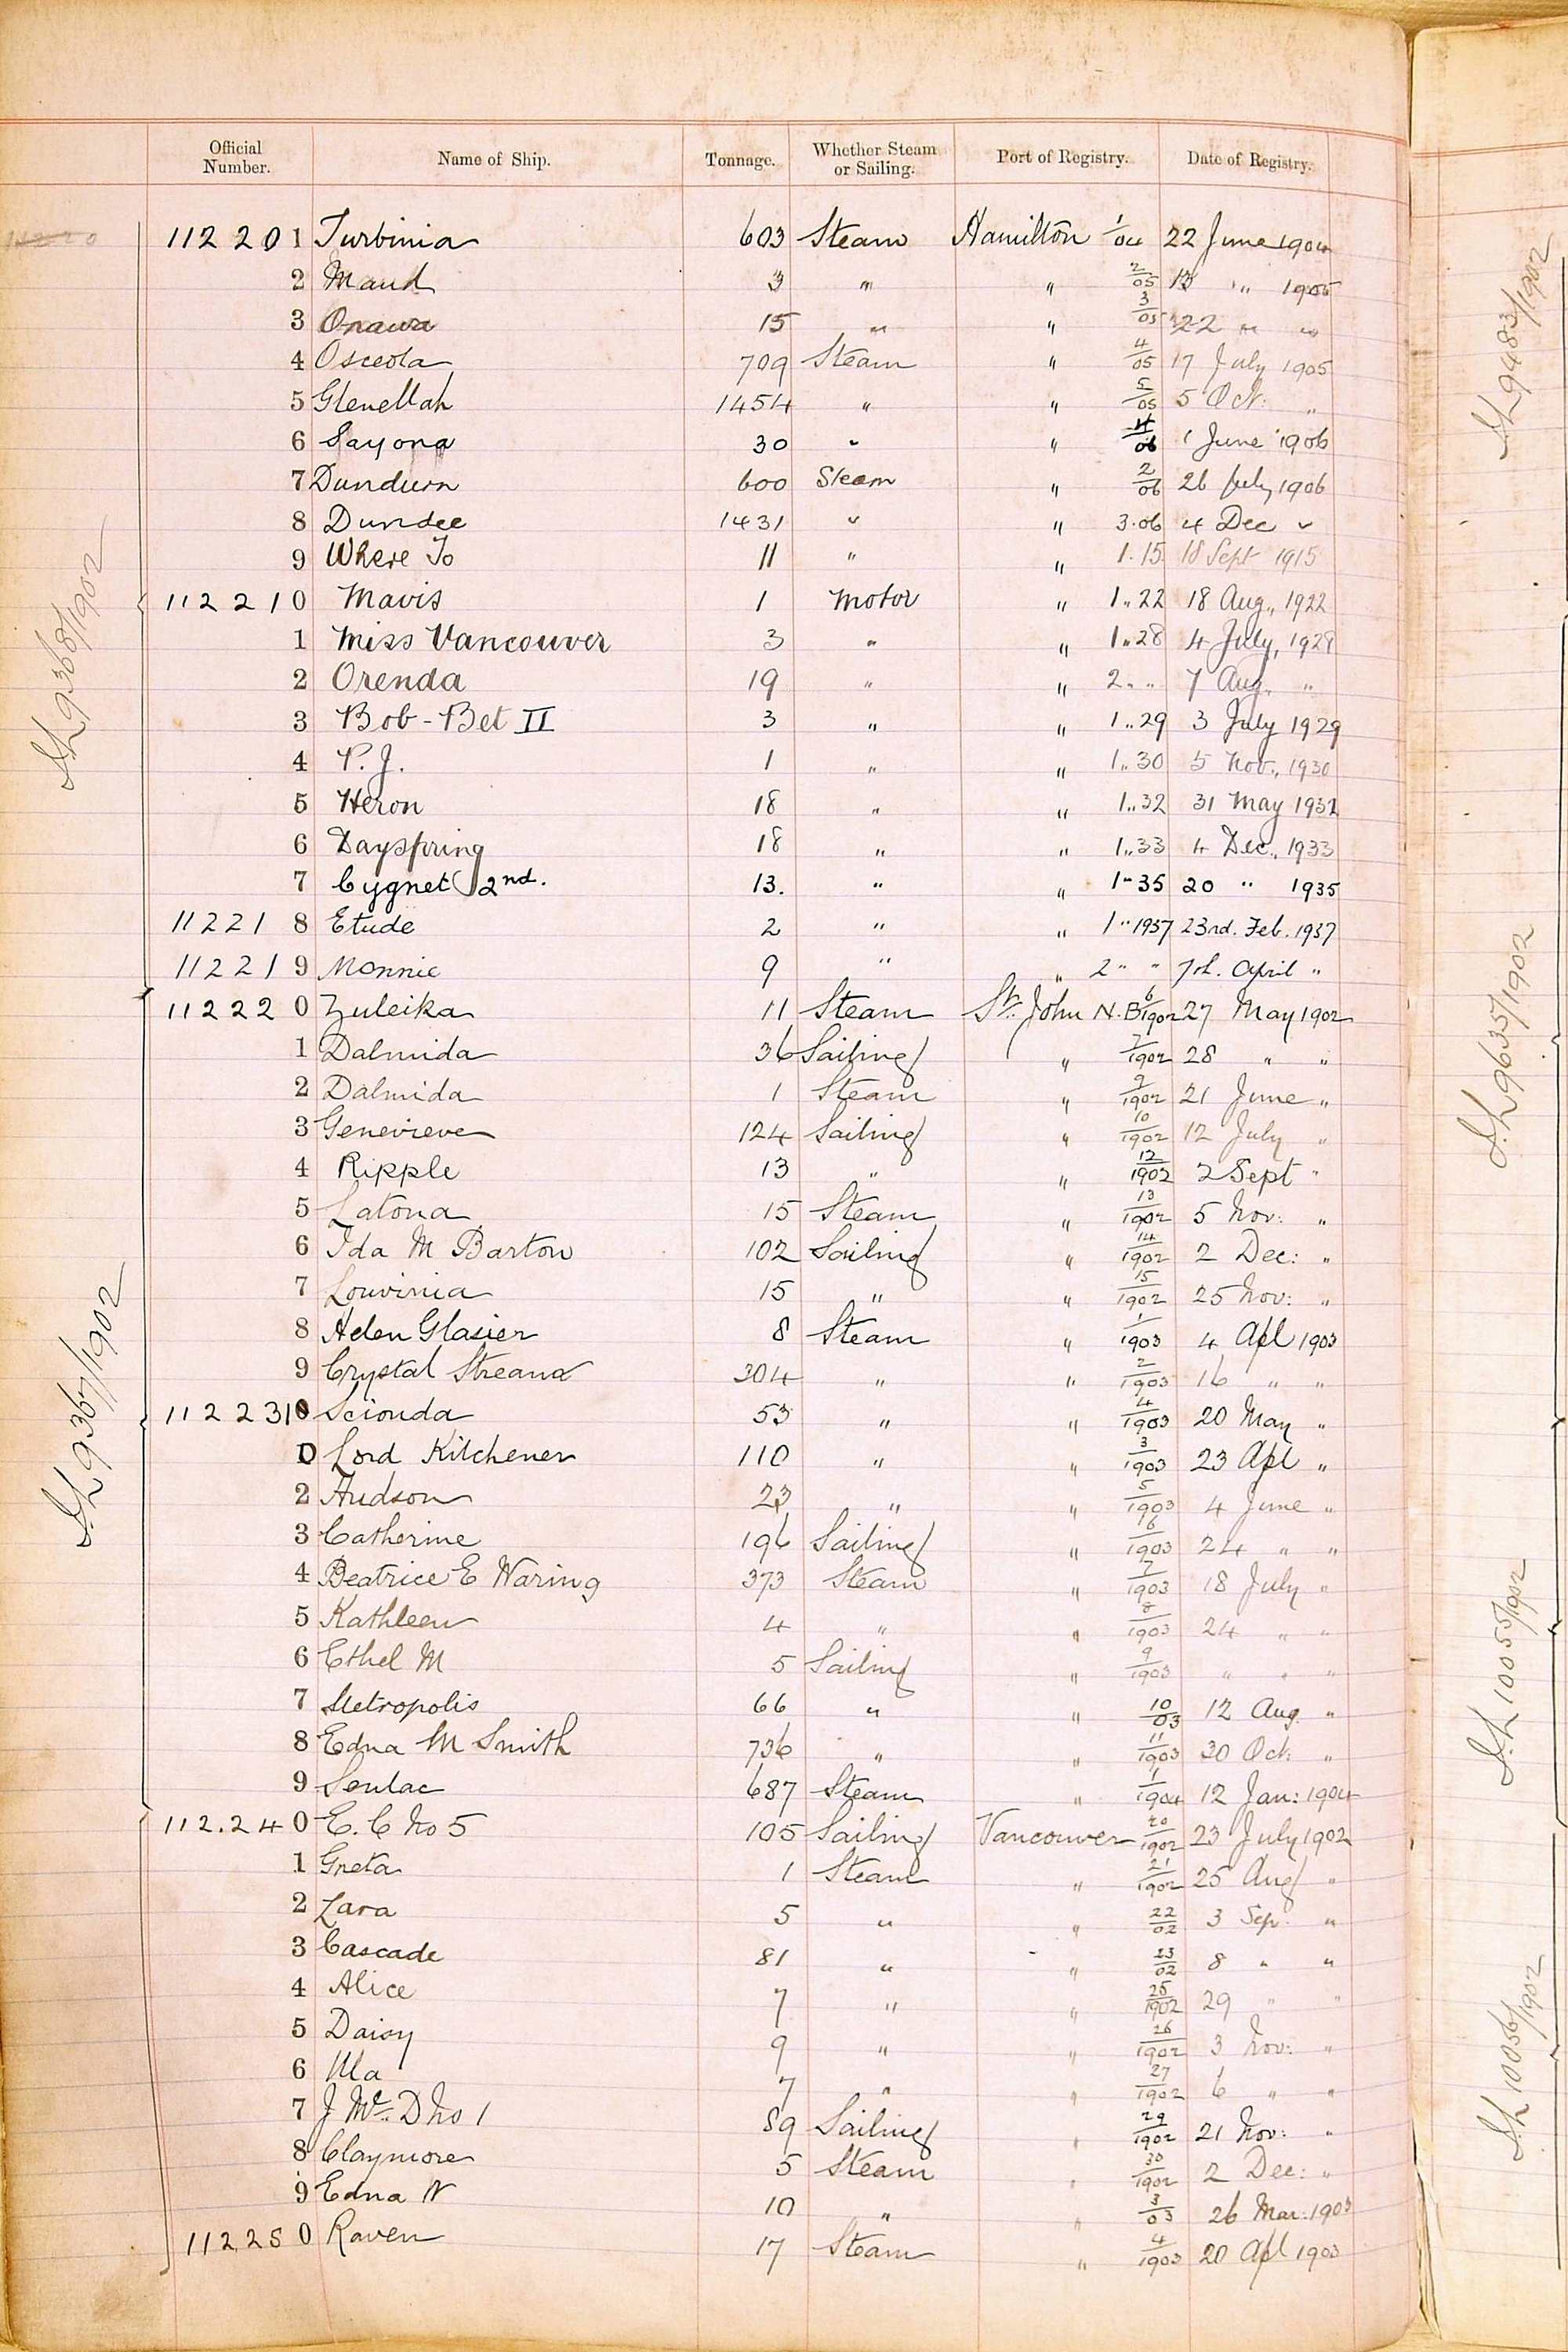 Official Number. Name of Ship. Tonnage. Whether Steam or Sailing. Port of Registry. Date of Registry.
112201 Turbinia 603 Steam Hamilton 1/04 22 June 1904
2 Maud 3 " " 2/05 13 " 1905
3 Onawa 15 " " 3/05 22 " "
4 Osceola 709 Steam " 4/05 17 July 1905
5 Glenellah 1454 " " 5/05 5 Oct: "
6 Sayona 30 " " /06 1 June 1906
7 Dundurn 600 Steam " 2/06 26 July 1906
8 Dundee 1431 " " 3.06 4 Dec "
9 Where To 11 " " 1.15 18 Sept 1915
112210 Mavis 1 Motor " 1..22 18 Aug., 1922
1 Miss Vancouver 3 " " 1..28 4 July, 1928
2 Orenda 19 " " 2.. " 7 Aug. "
3 Bob-Bet II 3 " " 1..29 3 July 1929
4 P. J. 1 " " 1..30 5 Nov., 1930
5 Heron 18 " " 1..32 31 May 1932
6 Dayspring 18 " " 1..33 4 Dec., 1933
7 Cygnet 2nd. 13. " " 1-35 20 " 1935
112218 Etude 2 " " 1..1937 23rd. Feb. 1937
112219 Monnie 9 " " 2 " " 7th. April "
112220 Zuleika 11 Steam St. John N.B 6/1902 27 May 1902
1 Dalmida 36 Sailing " 7/1902 28 " "
2 Dalmida 1 Steam " 9/1902 21 June "
3 Genevieve 124 Sailing " 10/1902 12 July "
4 Ripple 13 " " 12/1902 2 Sept "
5 Latona 15 Steam " 13/1902 5 Nov: "
6 Ida M Barton 102 Sailing " 14/1902 2 Dec: "
7 Louvinia 15 " " 15/1902 25 Nov: "
8 Helen Glasier 8 Steam " 1/1903 4 Apl 1903
9 Crystal Stream 304 " " 2/1903 16 " "
112231 Scionda 53 " " 4/1903 20 May "
0 Lord Kitchener 110 " " 3/1903 23 Apl "
2 Hudson 23 " " 5/1903 4 June "
3 Catherine 196 Sailing " 6/1903 24 " "
4 Beatrice E Waring 373 Steam " 7/1903 18 July "
5 Kathleen 4 " " 8/1903 24 " "
6 Ethel M 5 Sailing " 9/1903 " " "
7 Metropolis 66 " " 10/03 12 Aug. "
8 Edna M Smith 736 " " 11/1903 30 Oct: "
9 Senlac 687 Steam " 1/1904 12 Jan: 1904
112.240 E. C No 5 105 Sailing Vancouver 20/1902 23 July 1902
1 Greta 1 Steam " 21/1902 25 Aug "
2 Zara 5 " " 22/02 3 Sep. "
3 Cascade 81 " " 23/02 8 " "
4 Alice 7 " " 25/1902 29 " "
5 Daisy 9 " " 26/1902 3 Nov: "
6 Ula 7 " " 27/1902 6 " "
7 J McD No 1 89 Sailing " 29/1902 21 Nov: "
8 Claymore 5 Steam " 30/1902 2 Dec: "
9 Edna N 10 " " 3/03 26 Mar: 1903
112250 Raven 17 Steam " 4/1903 20 Apl 1903
9368/1902
9367/1902
9483/1902
9635/1902
10055/1902
10056/1902